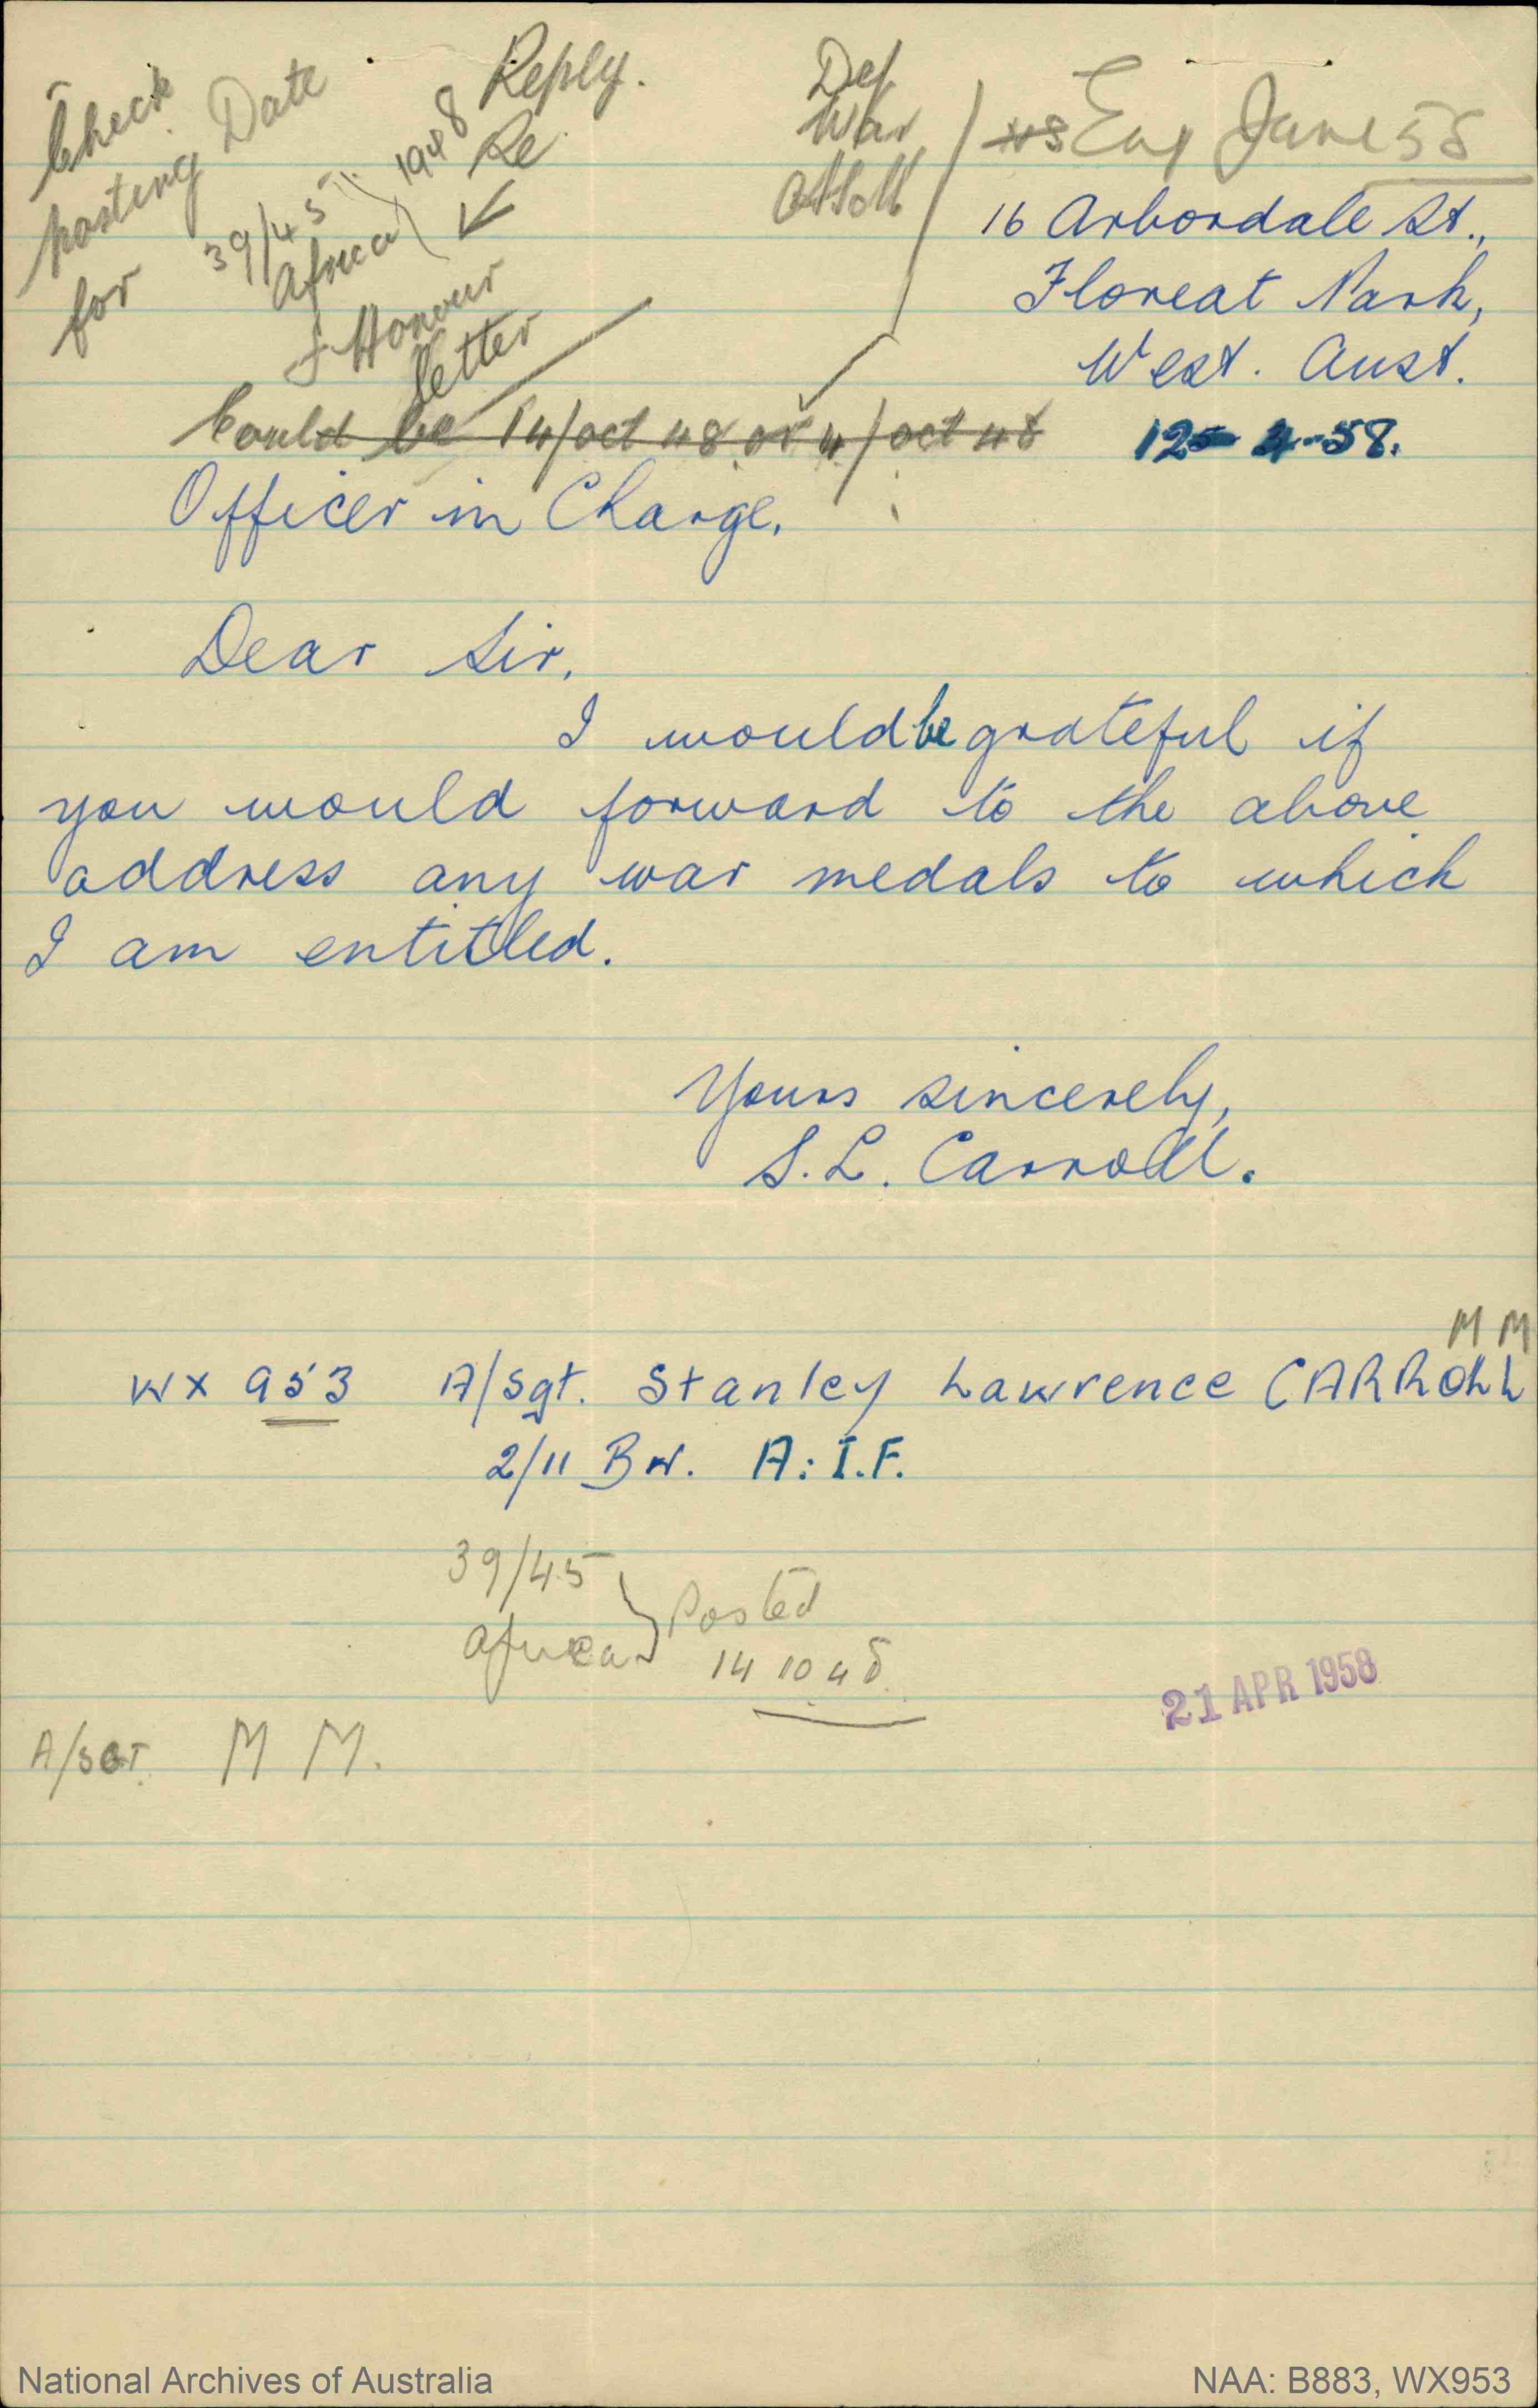 Check
posting Date
for 39/45
Africa } 1948
Reply.
Re
& Honour
Letter
Def
War
Eng June 58
16 Arbordale St.,
Floreat Park,
West. Aust.
Could be 14/oct 48 or 4/oct 48
12-4-58.
Officer in Charge,
Dear Sir,
I would be grateful if
you would forward to the above
address any war medals to which
I am entitled.
Yours sincerely,
S.L. Carroll.
MM
WX 953 A/Sgt. Stanley Lawrence CARROLL
2/11 BN. A.I.F.
39/45
Africa } Posted
14 10 48
21 APR 1958
A/SGT. M M.
National Archives of Australia
NAA: B883, WX953